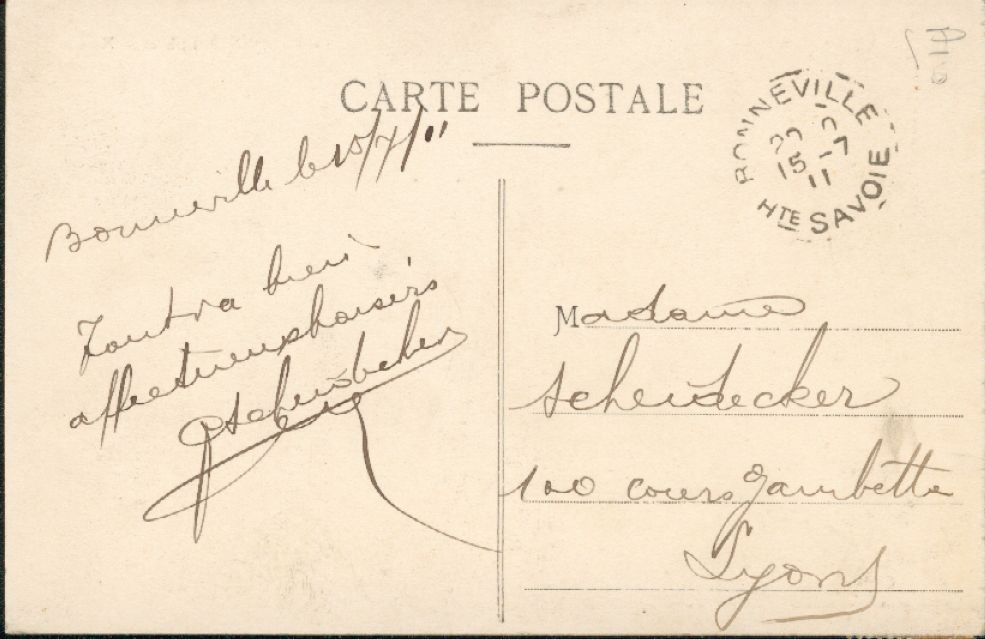 CARTE POSTALE
Bonneville le 15/7/11
Tout va bien
affectueux baisers
BONNEVILLE
15-7
11
HTE SAVOIE
Madame
100 cours Gambetta
Lyon